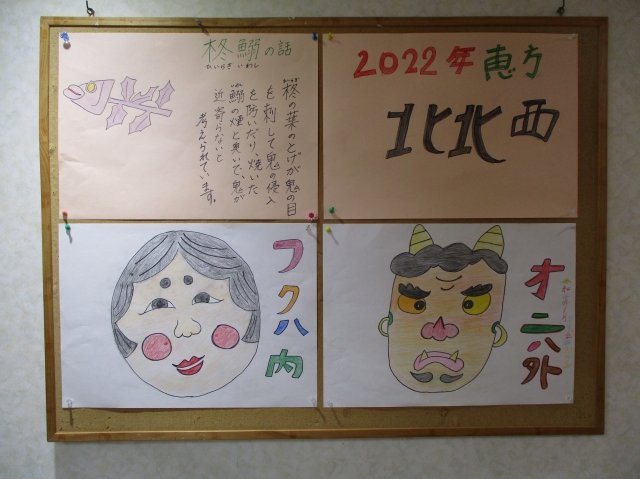 柊鰯の話
ひいらぎ いわし
柊の葉のとげが鬼の目
を刺して鬼の侵入
を防いだり、焼いた
鰯の煙と臭いで、鬼が
近寄らないと
考えられています。
2022年恵方
北北西
フクハ内
オニハ外